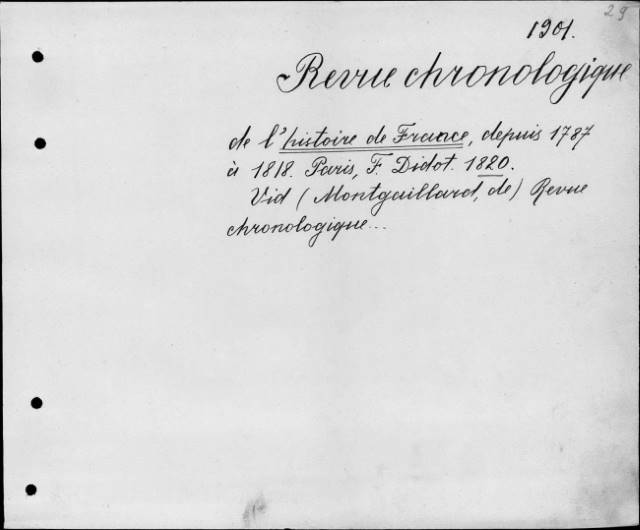 29
1901.
Revue chronologique
de l'histoire de France, depuis 1787
à 1818. Paris, F. Didot. 1820.
Vid (Montgaillard, de) Revue
chronologique...